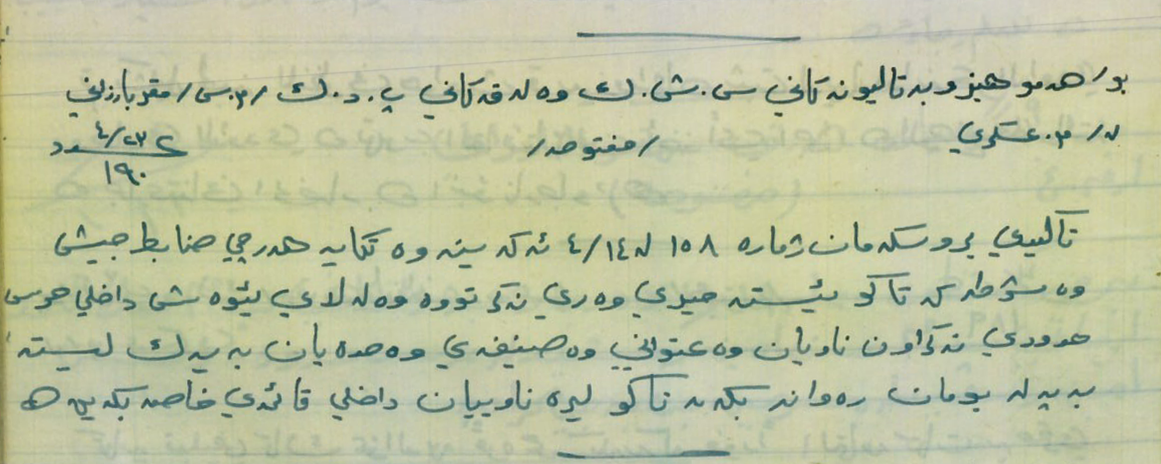 بو/ هەموهێزو بەتالیونەکانی س. ش. ك وە لەقەکانی پ. د. ك / م.س/ مقر بارزاني
لە/ م. عسکري /مفتوحە/ ٤/٢٣
١٩٠
تاکیدي بروسکەمان ژمارە ١٥٨ لە ٤/١٤ ئەکەینەوە تکایە هەرچي ضابط جیش
وە شرطە کە تاکو ئیستە خبري وەري نەگرتووە وە لە لاي ئیوەش داخلي حرس
حدودي نەکراون ناویان وە عنواني وە صنیفەي وەحدەیان بە یەك لیستە
بە پەلە بومان رەوانە بکەنە تاکو لیرە ناوییان داخلي قائمەي خاصە بکەین ھ